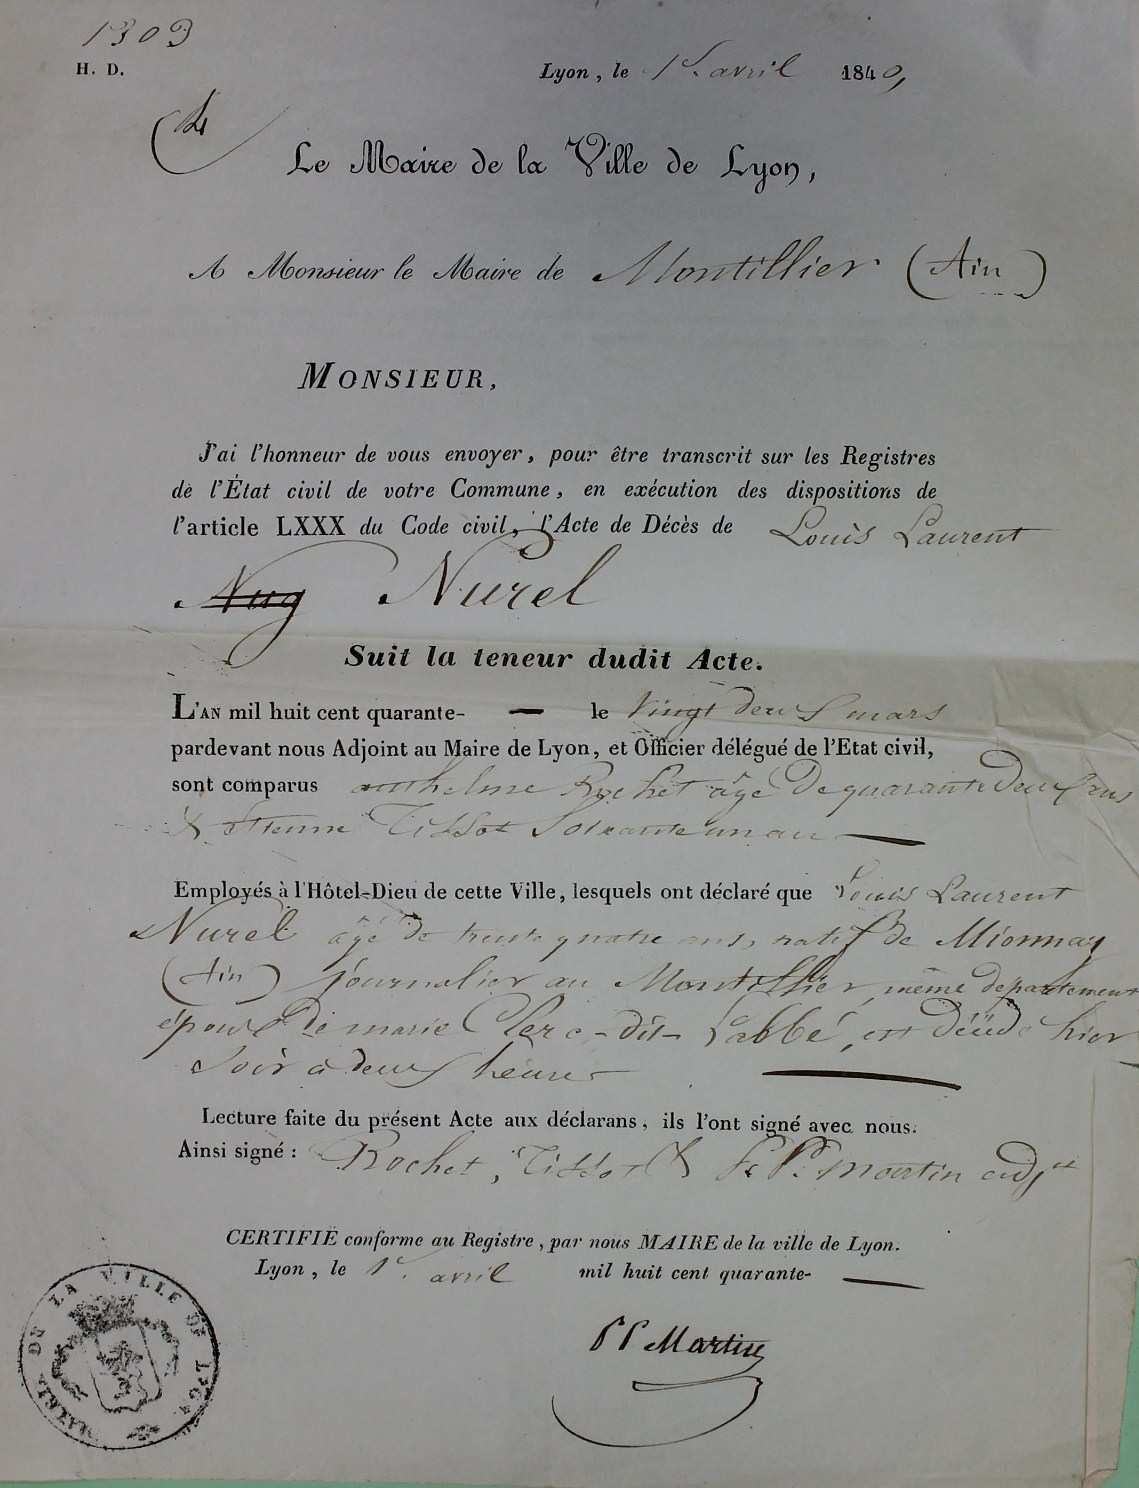 1303
H. D.
Lyon, le 1er. avril 1840,
Le Maire de la Ville de Lyon,
A Monsieur le Maire de Montillier (Ain)
MONSIEUR,
J'ai l'honneur de vous envoyer, pour être transcrit sur les Registres
de l'État civil de votre Commune, en exécution des dispositions de
l'article LXXX du Code civil, l'Acte de Décès de Louis Laurent
Nug Nurel
Suit la teneur dudit Acte.
L'AN mil huit cent quarante- — le Vingt deux mars
pardevant nous Adjoint au Maire de Lyon, et Officier délégué de l'Etat civil,
sont comparus anthelme Rochet âgé de quarante deux ans
& Etienne Tissot Soixante un an —
Employés à l'Hôtel-Dieu de cette Ville, lesquels ont déclaré que Louis Laurent
Nurel âgé de trente quatre ans, natif de Mionnay
(Ain) journalier au Montillier, même departement
époux de marie Clerc-dit-Labbé, est décédé hier
Soir à deux heures —
Lecture faite du présent Acte aux déclarans, ils l'ont signé avec nous.
Ainsi signé : Rochet, Tissot & P. P. Martin adjt
CERTIFIÉ conforme au Registre, par nous MAIRE de la ville de Lyon.
Lyon, le 1er. avril mil huit cent quarante- —
PP Martin
MAIRIE DE LA VILLE DE LYON